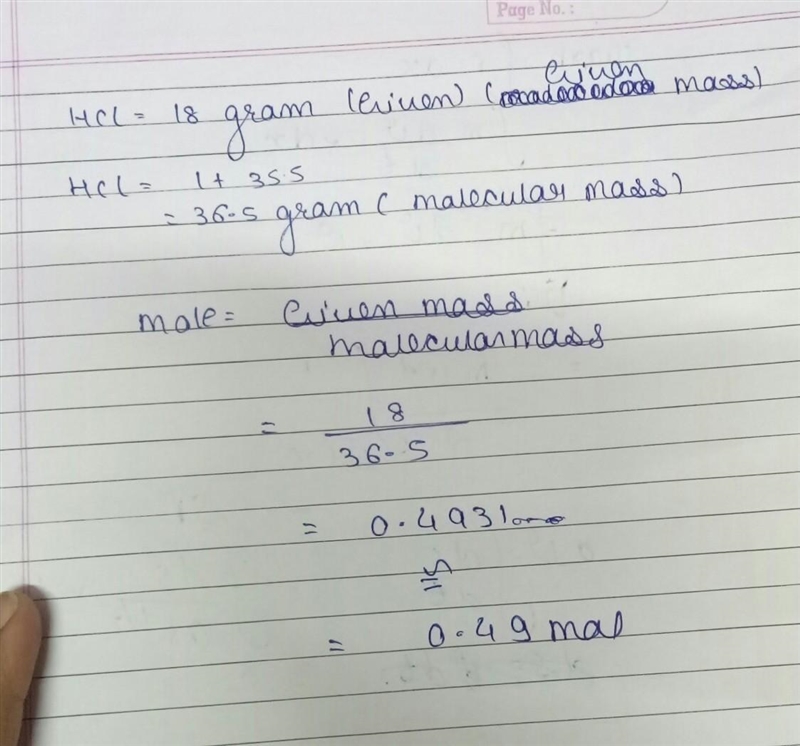 Page No. :
HCl = 18 gram (Given) (Given mass)
HCl = 1 + 35.5
= 36.5 gram ( molecular mass)
mole = Given mass
molecularmass
= 18
36.5
= 0.4931
≅
= 0.49 mol